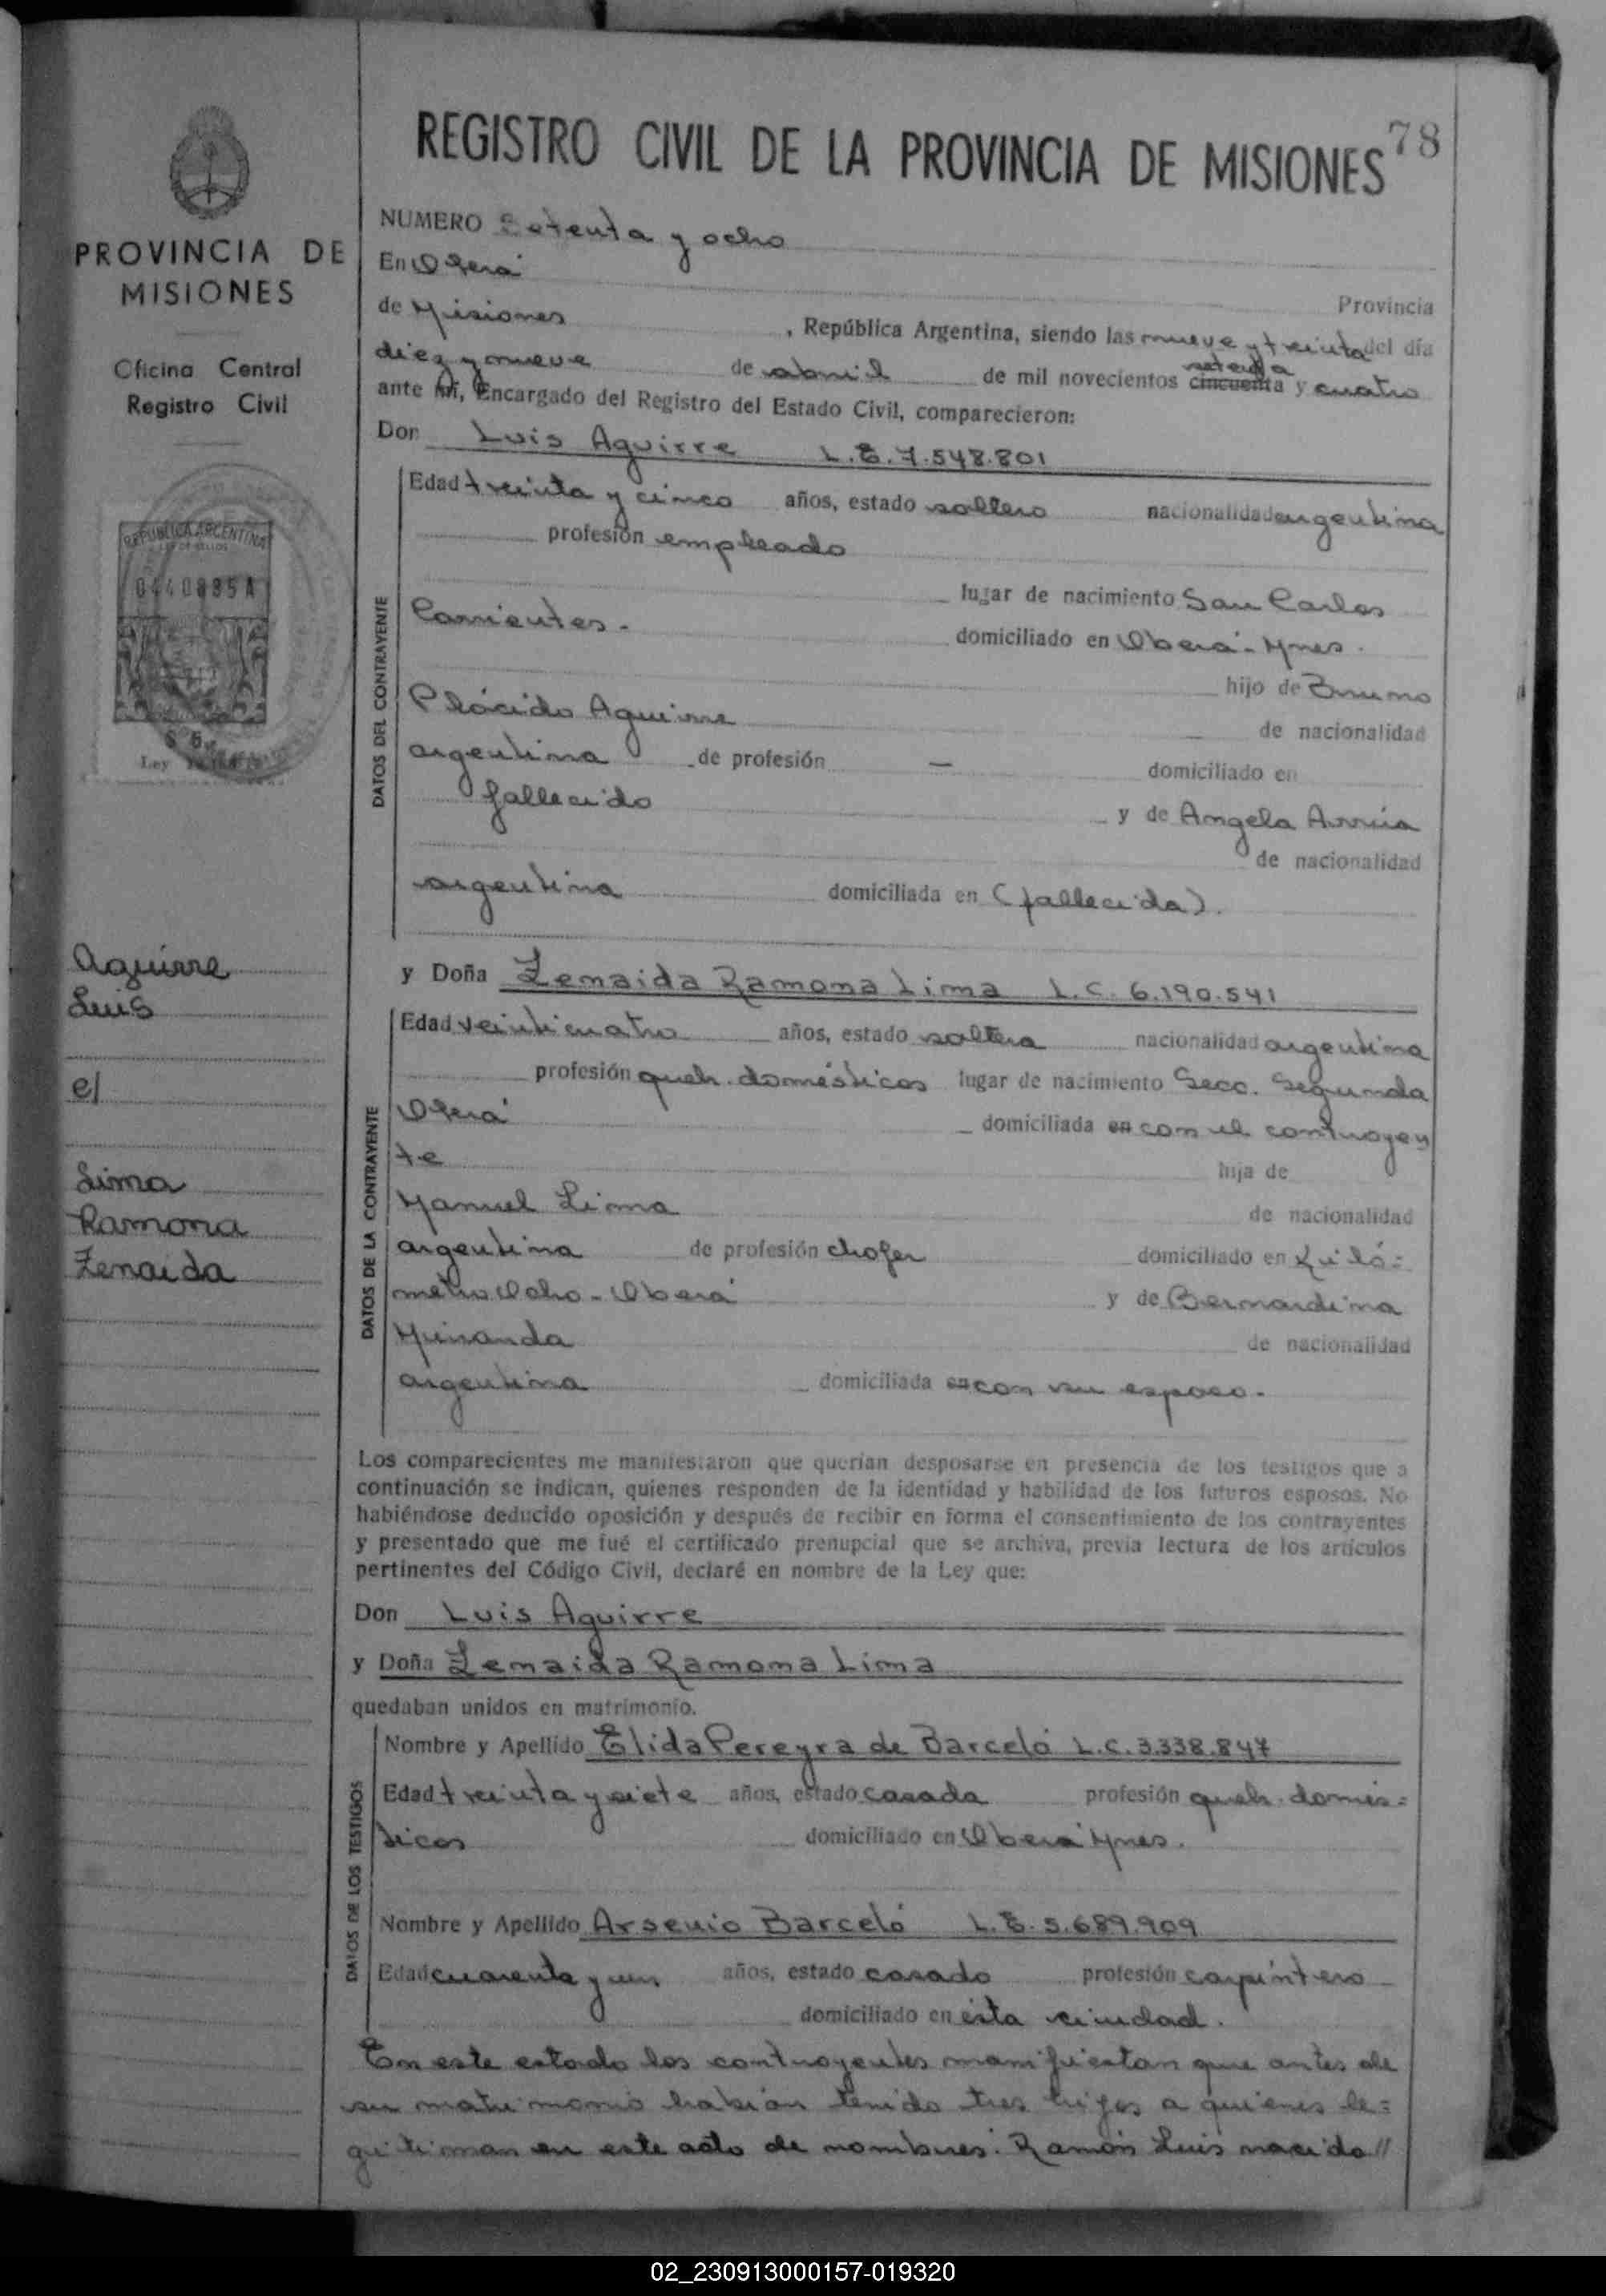 REGISTRO CIVIL DE LA PROVINCIA DE MISIONES 78
PROVINCIA DE
MISIONES
Oficina Central
Registro Civil
REPUBLICA ARGENTINA
LEY DE SELLOS
0440885 A
$ 5
Ley
Aguirre
Luis
c/
Lima
Ramona
Zenaida
NUMERO Setenta y ocho
En Oberá
Provincia
de Misiones, República Argentina, siendo las nueve y treinta del día
diez y nueve de abril de mil novecientos cincuenta setenta y cuatro
ante mí, Encargado del Registro del Estado Civil, comparecieron:
Don Luis Aguirre L.E. 7.548.801
DATOS DEL CONTRAYENTE
Edad treinta y cinco años, estado soltero nacionalidad argentina
profesión empleado
lugar de nacimiento San Carlos
Corrientes.- domiciliado en Oberá - Mnes.
hijo de Bruno
Plácido Aguirre de nacionalidad
argentina de profesión — domiciliado en
fallecido y de Angela Arrúa
de nacionalidad
argentina domiciliada en (fallecida).
y Doña Zenaida Ramona Lima L.C. 6.190.541
DATOS DE LA CONTRAYENTE
Edad veinticuatro años, estado soltera nacionalidad argentina
profesión queh. domésticos lugar de nacimiento Secc. Segunda
Oberá domiciliada en con el contrayen
te hija de
Manuel Lima de nacionalidad
argentina de profesión chofer domiciliado en Kiló=
metro Ocho - Oberá y de Bernardina
Miranda de nacionalidad
argentina domiciliada en con su esposo.
Los comparecientes me manifestaron que querían desposarse en presencia de los testigos que a
continuación se indican, quienes responden de la identidad y habilidad de los futuros esposos. No
habiéndose deducido oposición y después de recibir en forma el consentimiento de los contrayentes
y presentado que me fué el certificado prenupcial que se archiva, previa lectura de los artículos
pertinentes del Código Civil, declaré en nombre de la Ley que:
Don Luis Aguirre
y Doña Zenaida Ramona Lima
quedaban unidos en matrimonio.
DATOS DE LOS TESTIGOS
Nombre y Apellido Elida Pereyra de Barceló L.C. 3.338.847
Edad treinta y siete años, estado casada profesión queh. domés=
ticos domiciliado en Oberá Mnes.
Nombre y Apellido Arsenio Barceló L.E. 5.689.909
Edad cuarenta y un años, estado casado profesión carpintero
domiciliado en ésta ciudad.
En este estado los contrayentes manifiestan que antes de
su matrimonio habían tenido tres hijos a quienes le=
gitiman en este acto de nombres: Ramón Luis nacido //
02_230913000157-019320